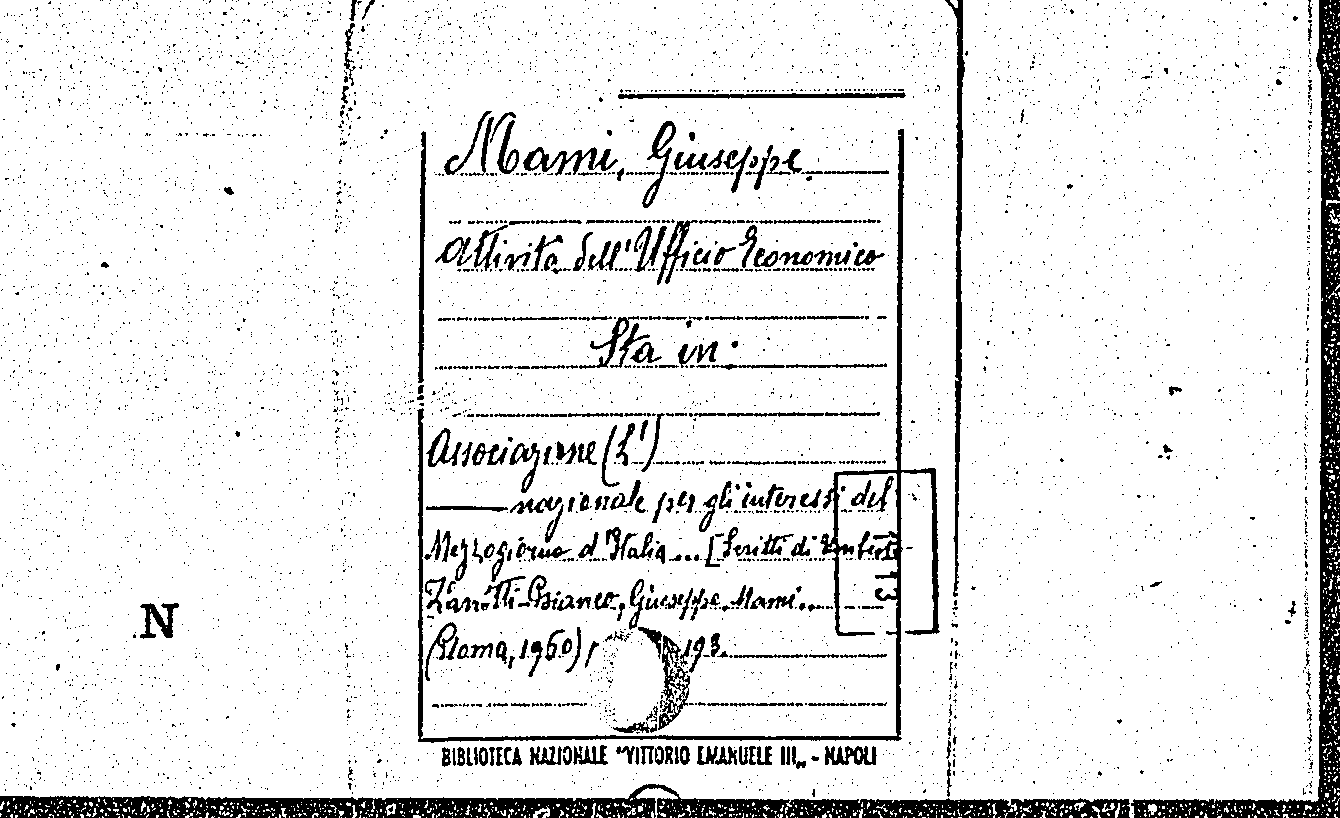 Mami, Giuseppe.
Attività dell'Ufficio Economico
Sta in:
Associazione (L')
nazionale per gli interessi del
Mezzogiorno d'Italia... [Scritti di Umberto
Zanotti-Bianco, Giuseppe Mami...
(Roma, 1960), 193.
13
N
BIBLIOTECA NAZIONALE "VITTORIO EMANUELE III„ - NAPOLI